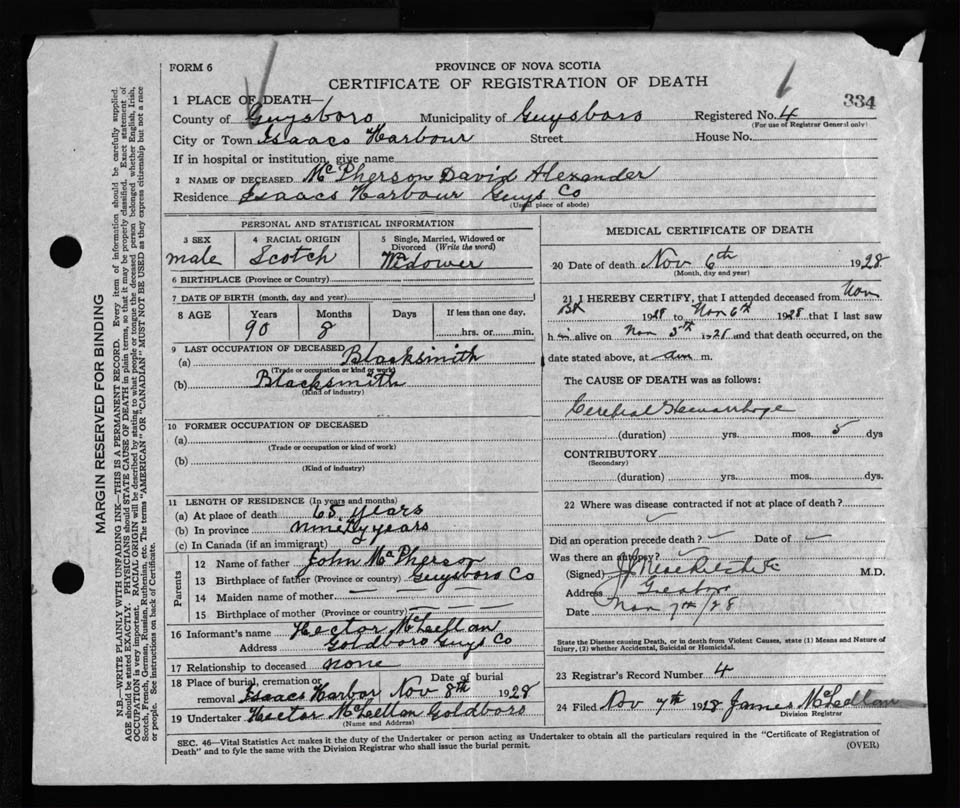 FORM 6
PROVINCE OF NOVA SCOTIA
CERTIFICATE OF REGISTRATION OF DEATH
334
1 PLACE OF DEATH—
County of Guysboro Municipality of Guysboro Registered No. 4
(For use of Registrar General only)
City or Town Isaacs Harbour Street House No.
If in hospital or institution, give name
2 NAME OF DECEASED McPherson David Alexander
Residence Isaacs Harbour Guys Co
(Usual place of abode)
PERSONAL AND STATISTICAL INFORMATION
3 SEX male
4 RACIAL ORIGIN Scotch
5 Single, Married, Widowed or Divorced (Write the word) Widower
6 BIRTHPLACE (Province or Country)
7 DATE OF BIRTH (month, day and year)
8 AGE Years Months Days If less than one day,
90 8 hrs. or min.
9 LAST OCCUPATION OF DECEASED
(a) Blacksmith
(Trade or occupation or kind of work)
(b) Blacksmith
(Kind of industry)
10 FORMER OCCUPATION OF DECEASED
(a)
(Trade or occupation or kind of work)
(b)
(Kind of industry)
11 LENGTH OF RESIDENCE (In years and months)
(a) At place of death 65 years
(b) In province ninety years
(c) In Canada (if an immigrant)
Parents
12 Name of father John McPherson
13 Birthplace of father (Province or country) Guysboro Co
14 Maiden name of mother — — — —
15 Birthplace of mother (Province or country) — — — —
16 Informant's name Hector McLellan
Address Goldboro Guys Co
17 Relationship to deceased none
18 Place of burial, cremation or removal Isaacs Harbor Date of burial Nov 8th 1928
19 Undertaker Hector McLellan Goldboro
(Name and Address)
MEDICAL CERTIFICATE OF DEATH
20 Date of death Nov 6th 1928
(Month, day and year)
21 I HEREBY CERTIFY, that I attended deceased from Nov
1928 to Nov 6th 1928 that I last saw
him alive on Nov 5th 1928 and that death occurred, on the
date stated above, at am m.
The CAUSE OF DEATH was as follows:
Cerebral Hemorrhage
(duration) yrs. mos. 5 dys
CONTRIBUTORY
(Secondary)
(duration) yrs. mos. dys.
22 Where was disease contracted if not at place of death?
Did an operation precede death? Date of
Was there an autopsy?
(Signed) M.D.
Address
Date Nov 7th/28
State the Disease causing Death, or in death from Violent Causes, state (1) Means and Nature of
Injury, (2) whether Accidental, Suicidal or Homicidal.
23 Registrar's Record Number 4
24 Filed Nov 7th 1928 James McLellan
Division Registrar
SEC. 46—Vital Statistics Act makes it the duty of the Undertaker or person acting as Undertaker to obtain all the particulars required in the "Certificate of Registration of
Death" and to fyle the same with the Division Registrar who shall issue the burial permit.
(OVER)
MARGIN RESERVED FOR BINDING
N.B.—WRITE PLAINLY WITH UNFADING INK—THIS IS A PERMANENT RECORD. Every item of information should be carefully supplied.
AGE should be stated EXACTLY. PHYSICIANS should STATE CAUSE OF DEATH in plain terms, so that it may be properly classified. Exact statement of
OCCUPATION is very important. RACIAL ORIGIN will be described by stating to what people or tongue the deceased person belonged whether English, Irish,
Scotch, French, German, Russian, Ruthenian, etc. The terms "AMERICAN" or "CANADIAN" MUST NOT BE USED as they express citizenship but not a race
or people. See instructions on back of Certificate.